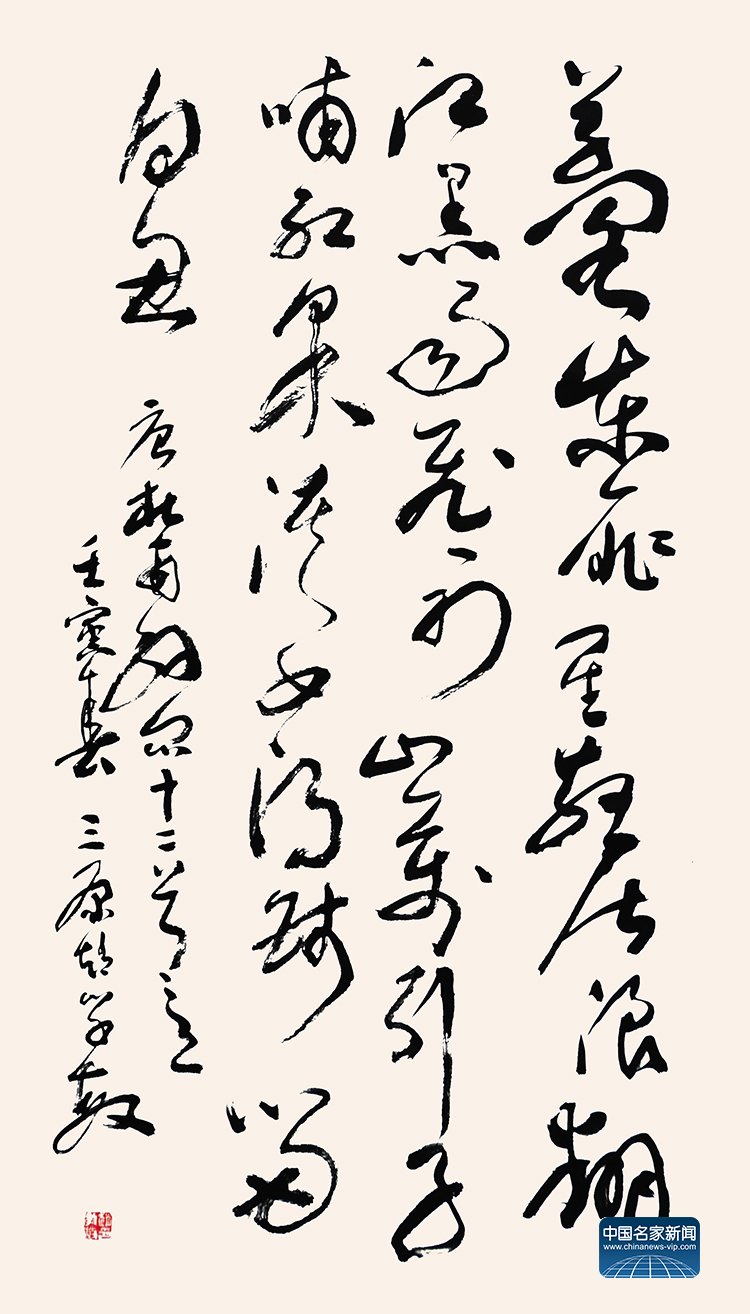 草閣柴扉星散居浪翻
江黑雨飛初山禽引子
哺紅果溪女得錢留
白魚 唐杜甫解悶十二首之一
壬寅春 三原趙學敏
中国名家新闻
www.chinanews-vip.com